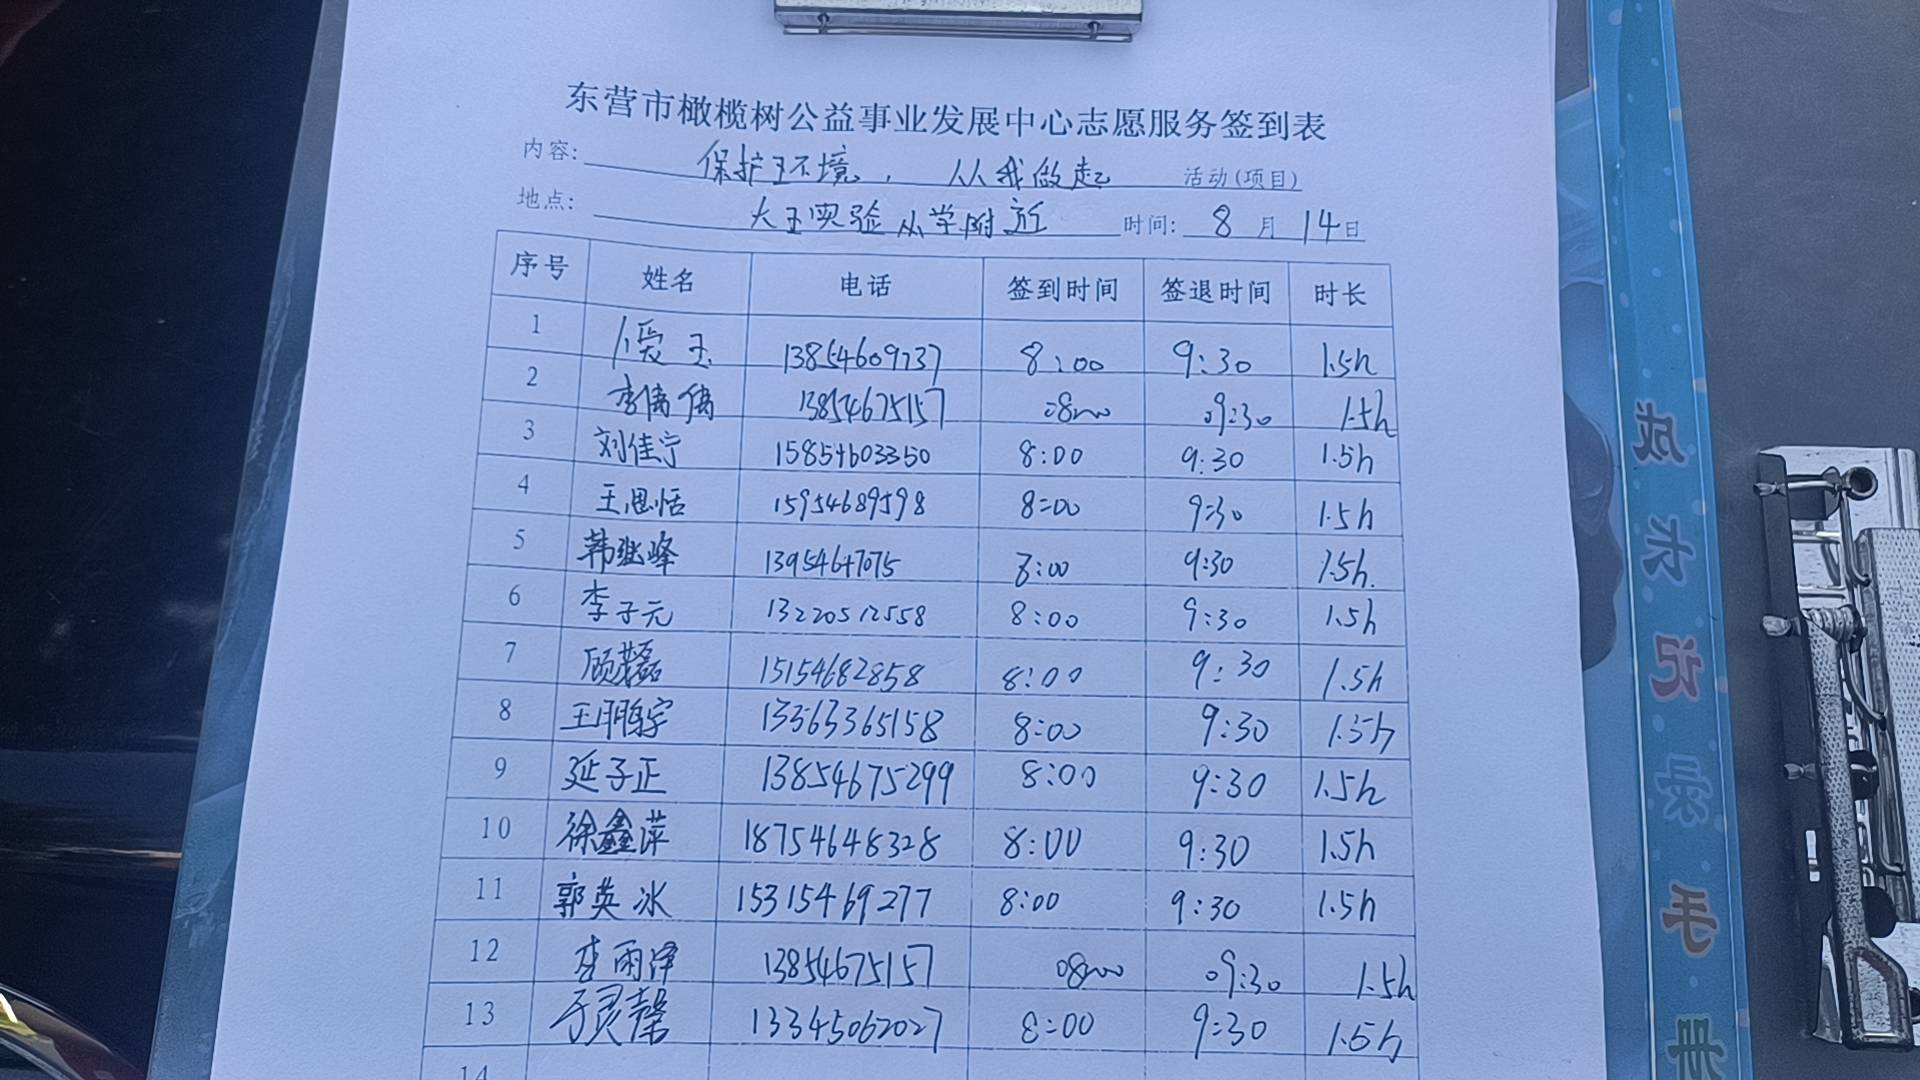 东营市橄榄树公益事业发展中心志愿服务签到表
内容: 保护环境,从我做起 活动(项目)
地点: 大王实验小学附近 时间: 8月14日
序号 姓名 电话 签到时间 签退时间 时长
1 爱玉 13854609737 8:00 9:30 1.5h
2 李倩倩 13854675157 08:00 09:30 1.5h
3 刘佳宁 15854603350 8:00 9:30 1.5h
4 王思恬 15954689598 8:00 9:30 1.5h
5 韩继峰 1395467075 8:00 9:30 1.5h.
6 李子元 13220512558 8:00 9:30 1.5h
7 顾磊 15154682858 8:00 9:30 1.5h
8 王鹏宇 13363365158 8:00 9:30 1.5h
9 延子正 13854675299 8:00 9:30 1.5h
10 徐鑫萍 18754648328 8:00 9:30 1.5h
11 郭英冰 15315469277 8:00 9:30 1.5h
12 李雨泽 13854675157 08:00 09:30 1.5h
13 于灵馨 13345062027 8:00 9:30 1.5h
14
成长记录手册